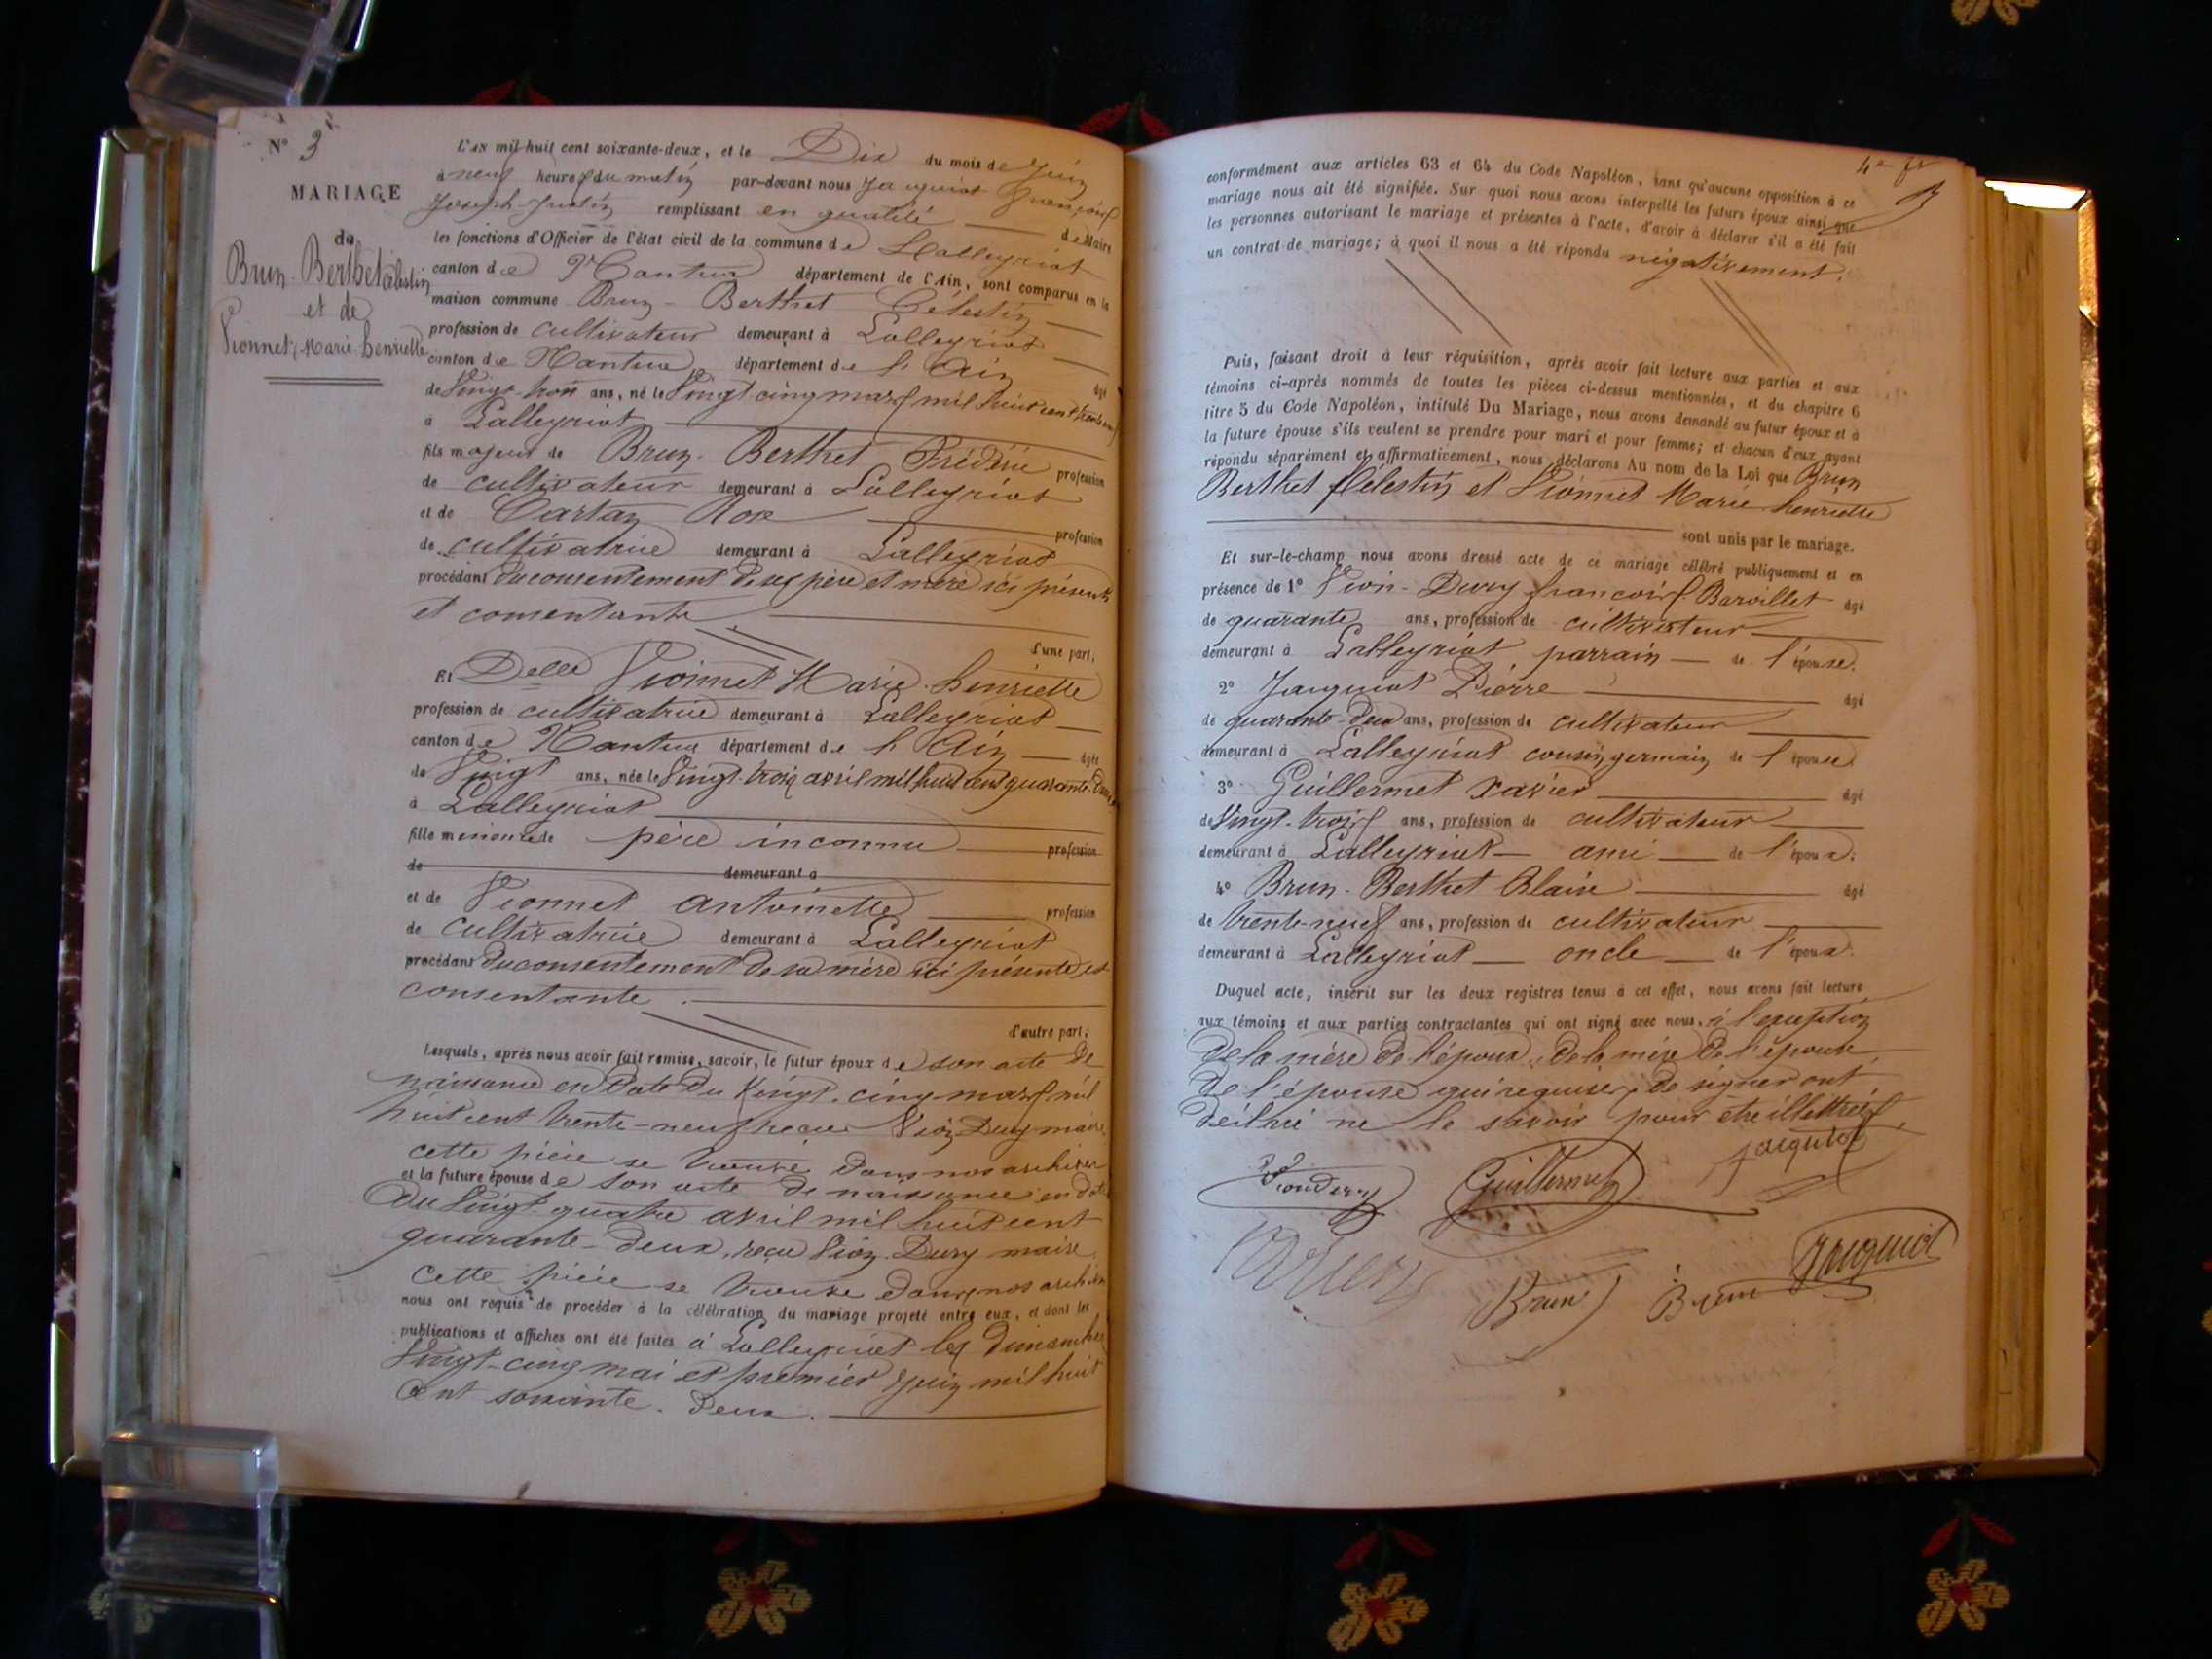 N° 3
MARIAGE
de
Brun-Berthet Célestin
et de
Vionnet Marie henriette
L'AN mil huit cent soixante-deux, et le Dix du mois de Juin
à neuf heures du matin par-devant nous Jacquiot François
Joseph-Justin remplissant en qualité de Maire
les fonctions d'Officier de l'état civil de la commune de Lalleyriat
canton de Nantua département de l'Ain, sont comparus en la
maison commune Brun-Berthet Célestin
profession de cultivateur demeurant à Lalleyriat
canton de Nantua département de l'Ain âgé
de Vingt-trois ans, né le Vingt cinq mars mil huit cent trente neuf
à Lalleyriat
fils majeur de Brun-Berthet Frédéric profession
de cultivateur demeurant à Lalleyriat
et de Cartan Rose profession
de cultivatrice demeurant à Lalleyriat
procédant du consentement de ses père et mère ici présents
et consentants
d'une part,
Et Delle Vionnet Marie-henriette
profession de cultivatrice demeurant à Lalleyriat
canton de Nantua département de l'Ain âgée
de Vingt ans, née le Vingt-trois avril mil huit cent quarante-deux
à Lalleyriat
fille mineure de père inconnu profession
de demeurant à
et de Vionnet Antoinette profession
de cultivatrice demeurant à Lalleyriat
procédant du consentement de sa mère ici présente et
consentante.
d'autre part;
Lesquels, après nous avoir fait remise, savoir, le futur époux de son acte de
naissance en date du Vingt-cinq mars mil
huit cent trente-neuf reçu Vion Dury maire
cette pièce se trouve dans nos archives
et la future épouse de son acte de naissance en date
du Vingt-quatre avril mil huit cent
quarante-deux, reçu Vion-Dury maire
cette pièce se trouve dans nos archives
nous ont requis de procéder à la célébration du mariage projeté entre eux, et dont les
publications et affiches ont été faites à Lalleyriat les Dimanches
Vingt-cinq mai et premier Juin mil huit
cent soixante-deux.
conformément aux articles 63 et 64 du Code Napoléon, sans qu'aucune opposition à ce
mariage nous ait été signifiée. Sur quoi nous avons interpellé les futurs époux ainsi que
les personnes autorisant le mariage et présentes à l'acte, d'avoir à déclarer s'il a été fait
un contrat de mariage; à quoi il nous a été répondu négativement.
Puis, faisant droit à leur réquisition, après avoir fait lecture aux parties et aux
témoins ci-après nommés de toutes les pièces ci-dessus mentionnées, et du chapitre 6
titre 5 du Code Napoléon, intitulé Du Mariage, nous avons demandé au futur époux et à
la future épouse s'ils veulent se prendre pour mari et pour femme; et chacun d'eux ayant
répondu séparément et affirmativement, nous déclarons Au nom de la Loi que Brun
Berthet Célestin et Vionnet Marie henriette
sont unis par le mariage.
Et sur-le-champ nous avons dressé acte de ce mariage célébré publiquement et en
présence de 1° Vion-Dury françois-Baroillet âgé
de quarante ans, profession de cultivateur
demeurant à Lalleyriat parrain de l'épouse.
2° Jacquiot Pierre âgé
de quarante-deux ans, profession de cultivateur
demeurant à Lalleyriat cousin germain de l'épouse.
3° Guillermet Xavier âgé
de Vingt-trois ans, profession de cultivateur
demeurant à Lalleyriat ami de l'époux.
4° Brun-Berthet Blaise âgé
de trente-neuf ans, profession de cultivateur
demeurant à Lalleyriat oncle de l'époux.
Duquel acte, inscrit sur les deux registres tenus à cet effet, nous avons fait lecture
aux témoins et aux parties contractantes qui ont signé avec nous, à l'exception
de la mère de l'époux, de la mère de l'épouse,
de l'épouse qui requises de signer ont
ne le savoir pour être illettrées
Viondury Guillermet Jacquiot
Brun Jacquiot